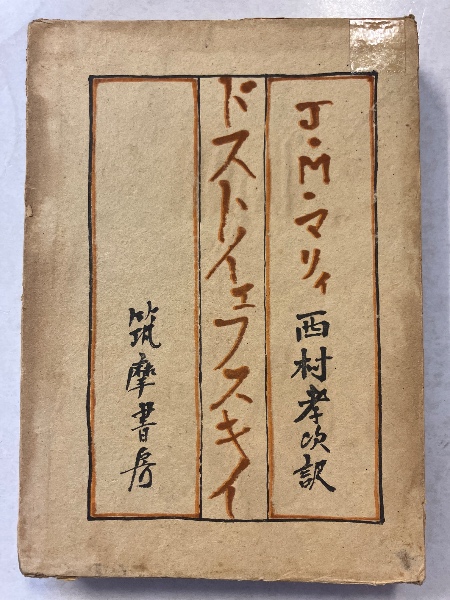 J・M・マリイ
西村孝次訳
ドストイエフスキイ
筑摩書房